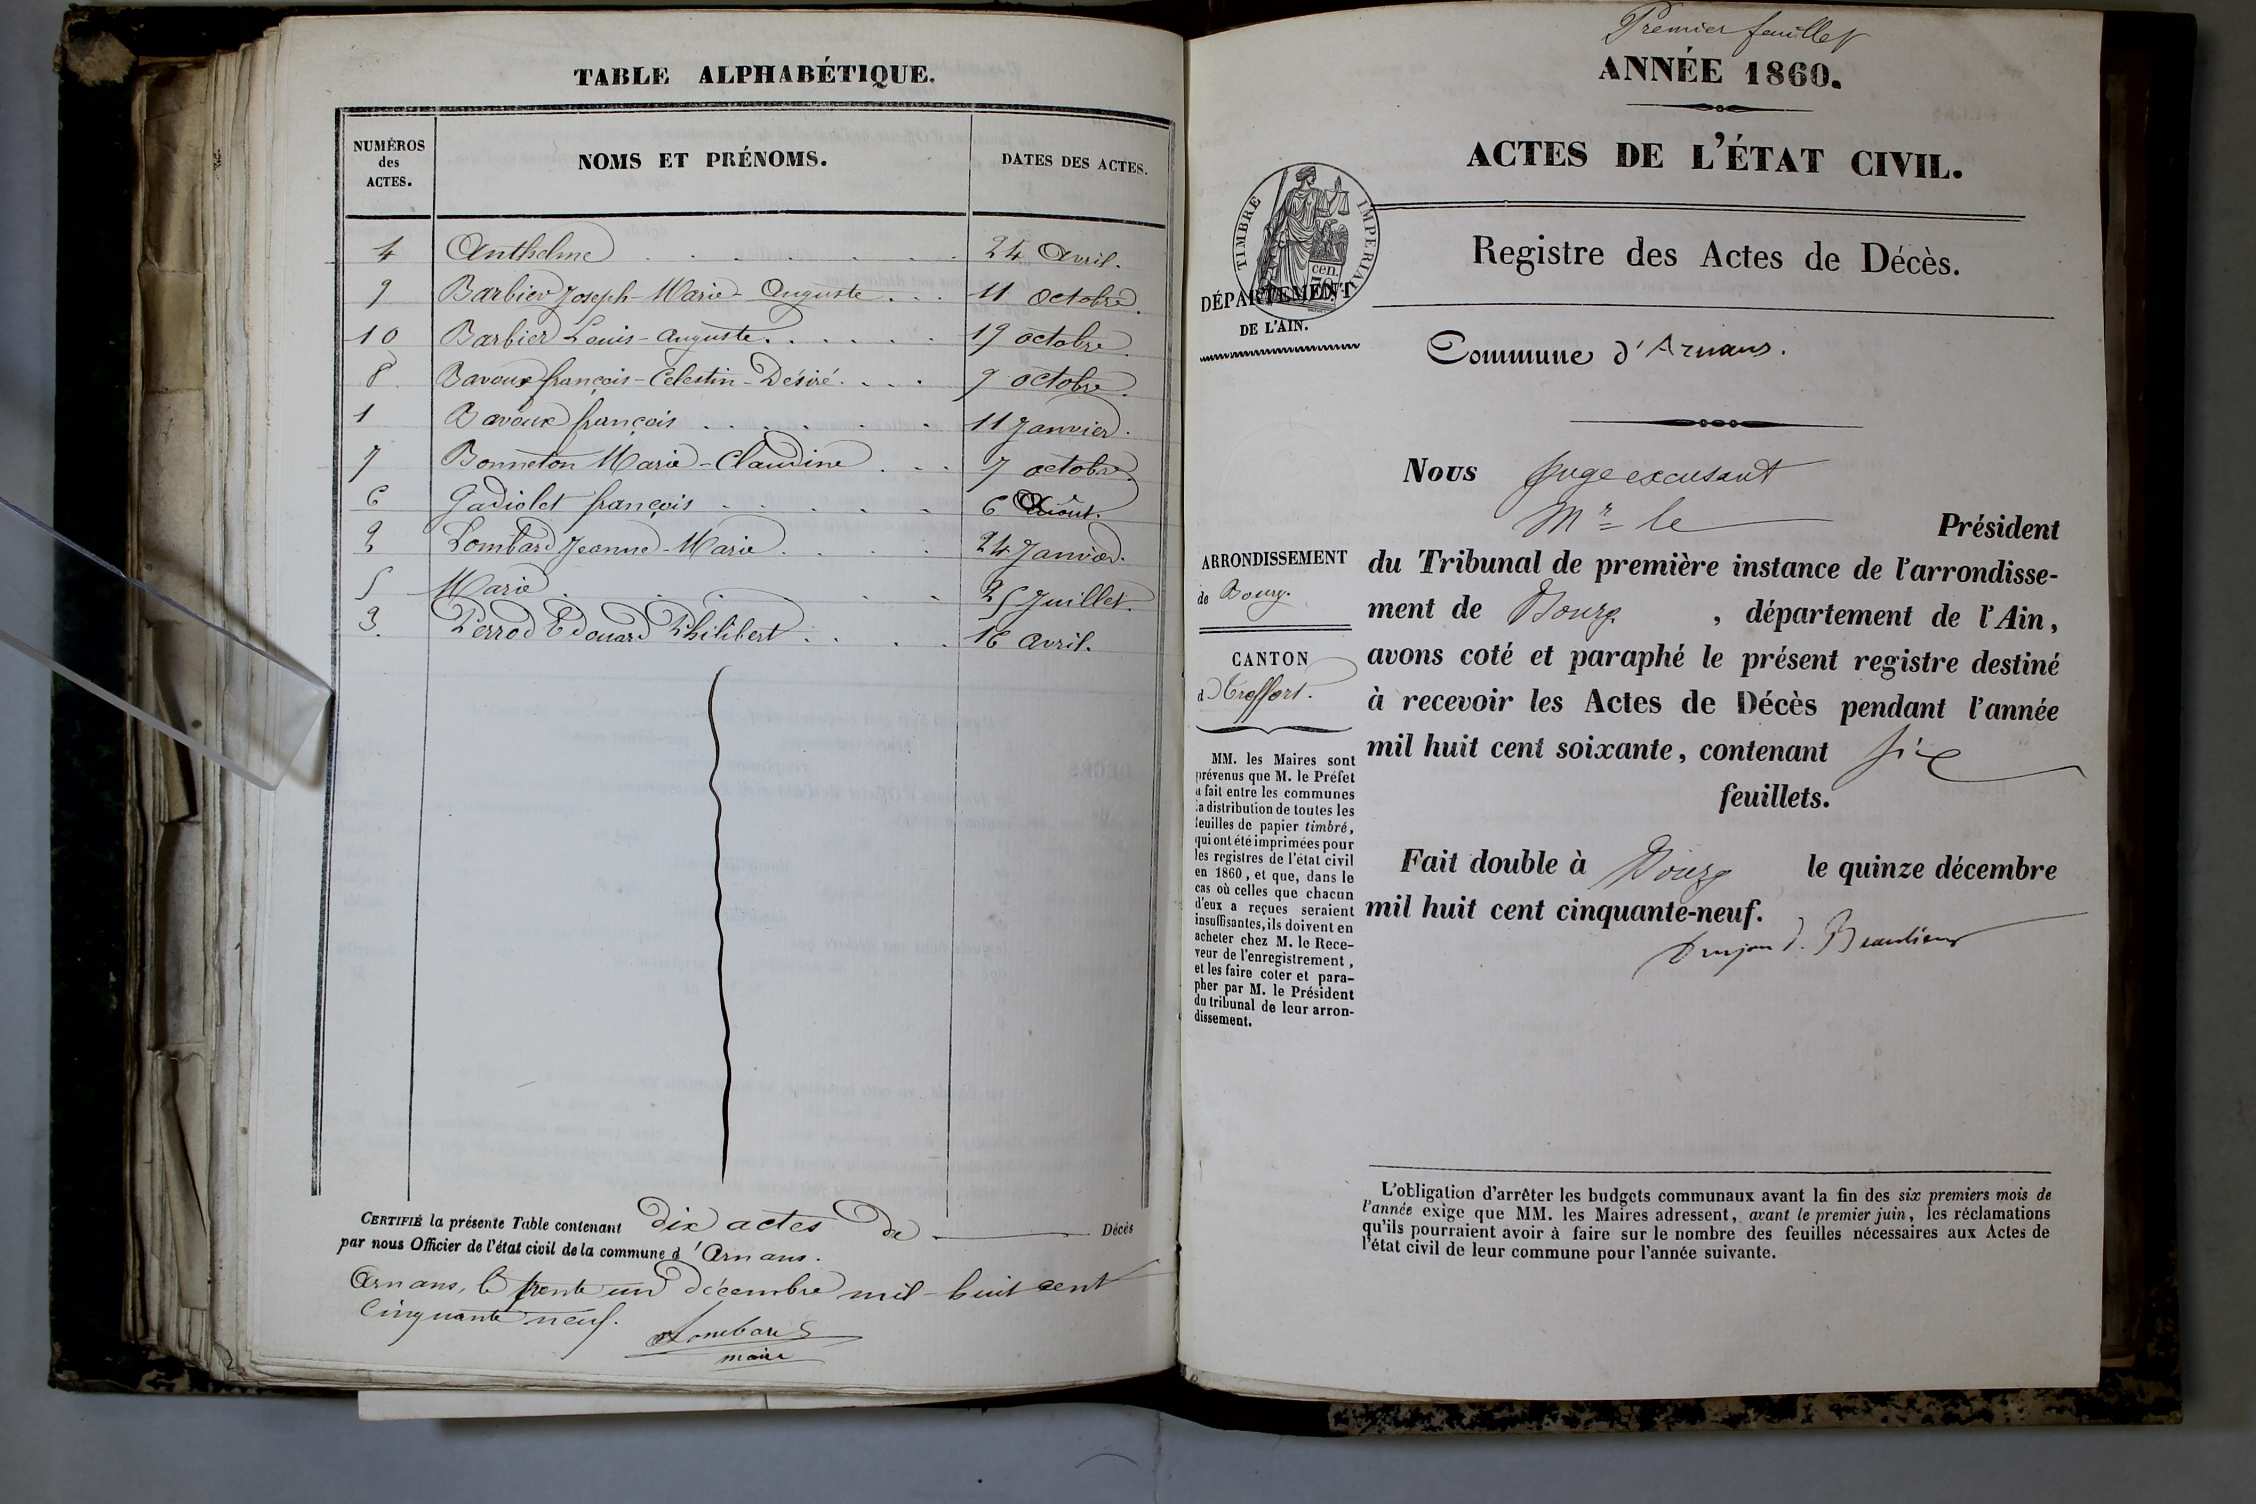 TABLE ALPHABÉTIQUE.
NUMÉROS des ACTES. NOMS ET PRÉNOMS. DATES DES ACTES.
4 Anthelme 24 Avril.
9 Barbier Joseph-Marie-Auguste 11 Octobre.
10 Barbier Louis-Auguste 19 octobre.
8 Bavoux françois-Celestin-Désiré 9 octobre.
1 Bavoux françois 11 Janvier.
7 Bonneton Marie-Claudine 7 octobre.
6 Gadiolet françois 6 Août.
2 Lombard Jeanne-Marie 24 Janvier.
5 Marie 25 Juillet.
3. Perrod Edouard Philibert 16 avril.
CERTIFIÉ la présente Table contenant dix actes de Décès
par nous Officier de l'état civil de la commune d'Arnans.
Arnans, le trente un décembre mil-huit cent
cinquante neuf.
Lombard
maire
Premier feuillet
ANNÉE 1860.
ACTES DE L'ÉTAT CIVIL.
TIMBRE IMPÉRIAL
cen.
Registre des Actes de Décès.
DÉPARTEMENT
DE L'AIN.
Commune d'Arnans.
Nous Juge excusant
Mr le Président
du Tribunal de première instance de l'arrondisse-
ment de Bourg, département de l'Ain,
avons coté et paraphé le présent registre destiné
à recevoir les Actes de Décès pendant l'année
mil huit cent soixante, contenant six
feuillets.
Fait double à Bourg le quinze décembre
mil huit cent cinquante-neuf.
d. Beaulieu
ARRONDISSEMENT
de Bourg.
CANTON
d Treffort.
MM. les Maires sont
prévenus que M. le Préfet
a fait entre les communes
la distribution de toutes les
feuilles de papier timbré,
qui ont été imprimées pour
les registres de l'état civil
en 1860, et que, dans le
cas où celles que chacun
d'eux a reçues seraient
insuffisantes, ils doivent en
acheter chez M. le Rece-
veur de l'enregistrement,
et les faire coter et para-
pher par M. le Président
du tribunal de leur arron-
dissement.
L'obligation d'arrêter les budgets communaux avant la fin des six premiers mois de
l'année exige que MM. les Maires adressent, avant le premier juin, les réclamations
qu'ils pourraient avoir à faire sur le nombre des feuilles nécessaires aux Actes de
l'état civil de leur commune pour l'année suivante.